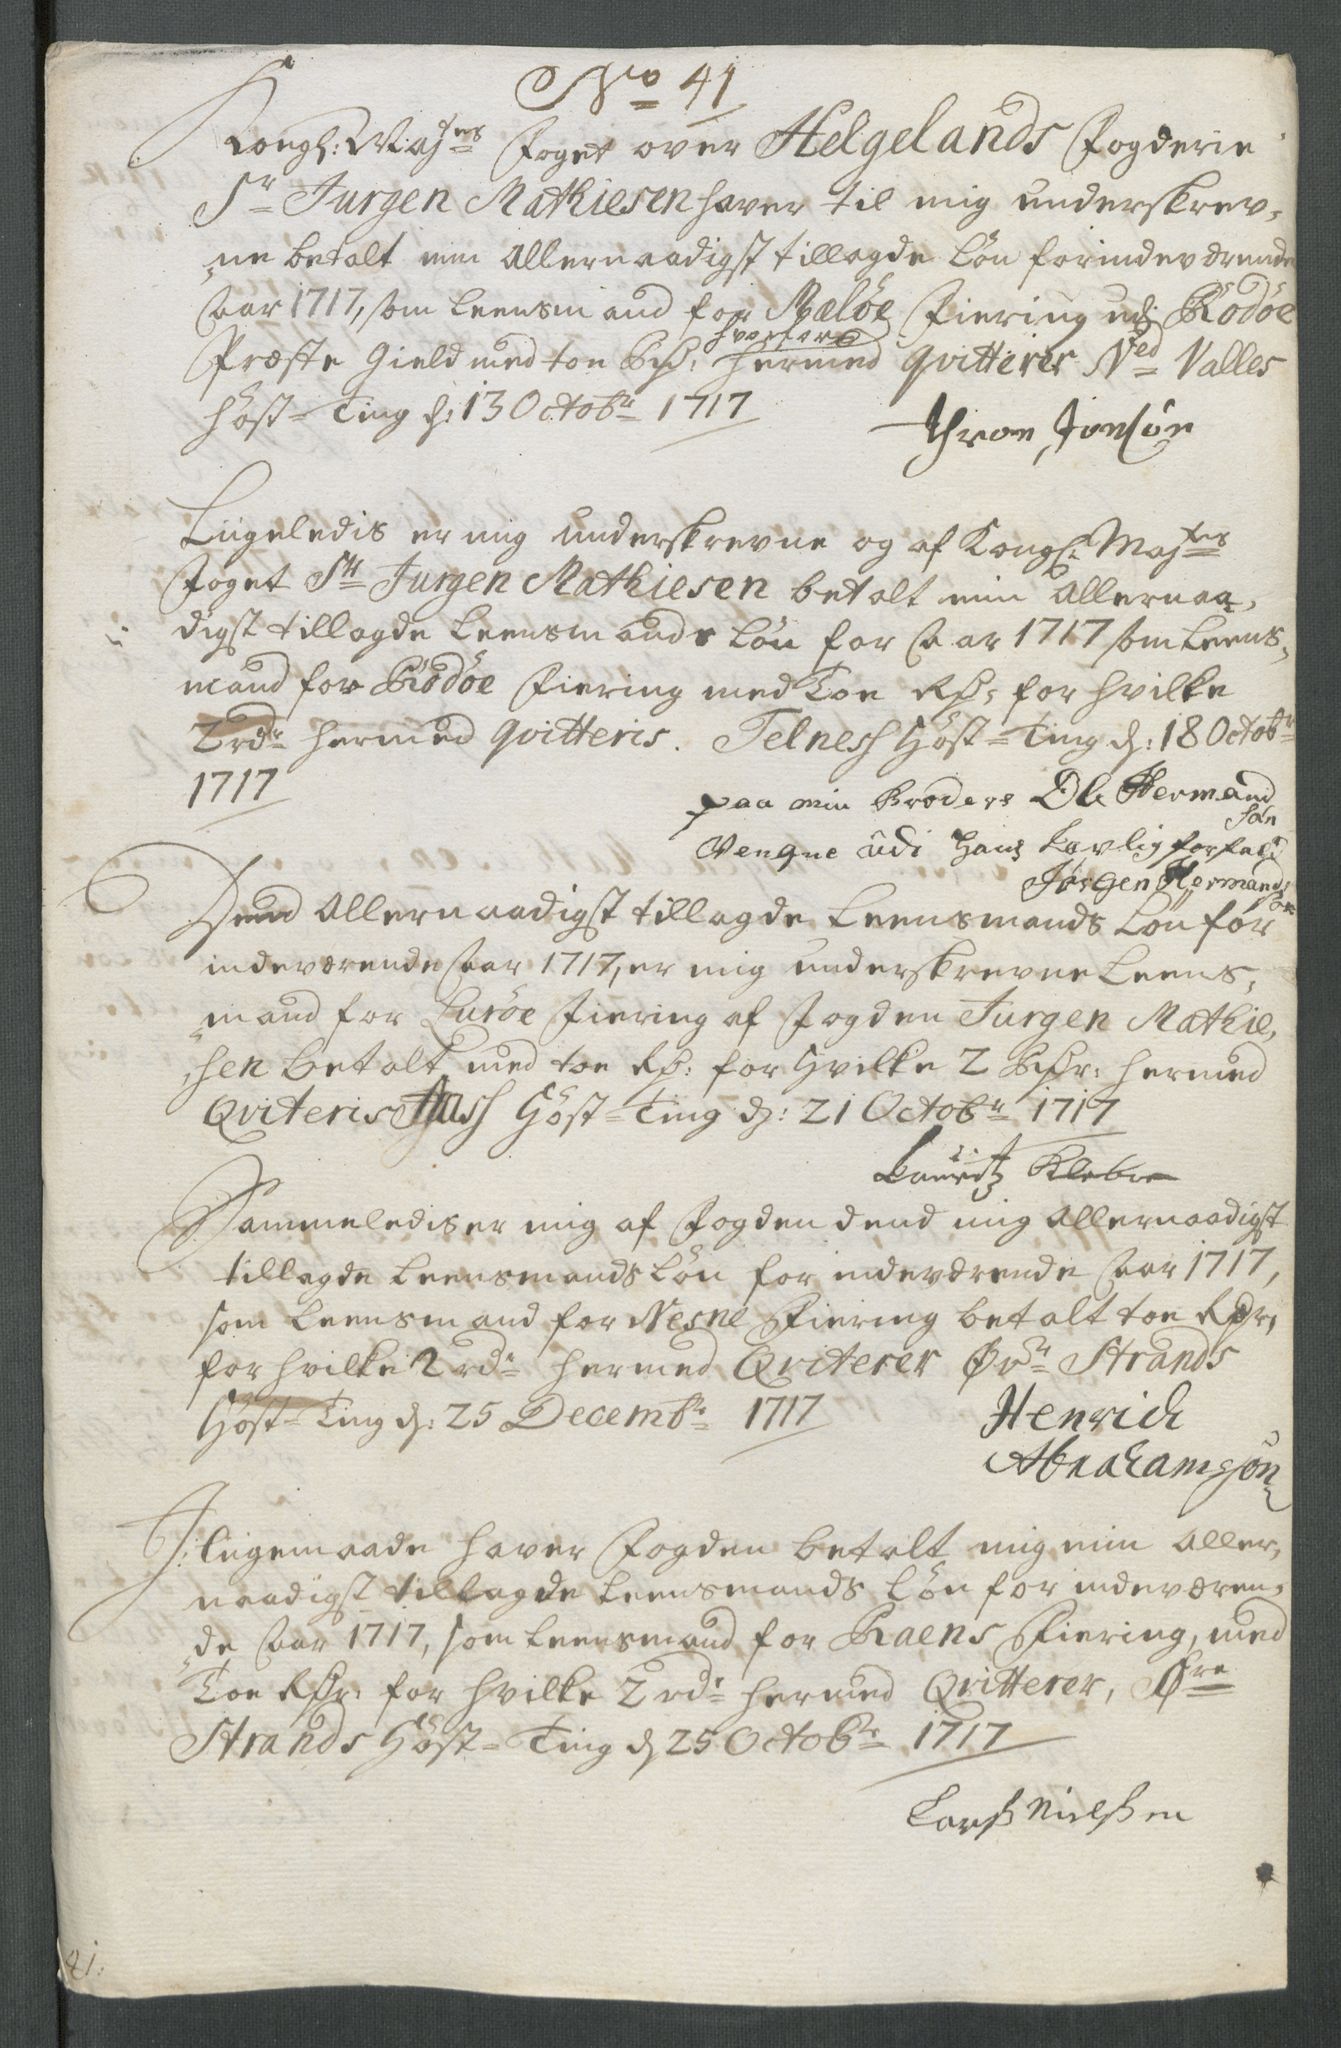 No 41
Kongl: Maj:tes Foget over Helgelands Fogderie
Sr Jurgen Mathiesen haver til mig underskrev-
ne betalt min Allernaadigst tillagde Løn for indeværende
Aar 1717, som Leensmand for Meløe Fiering udj Rödöe
Præste Gield med toe Rdr: hvorfore hermed qvitterer Ned Valles
Höst-Ting d: 13 Octobr 1717
Thron Jonsön
Liigeledis er mig underskrevne og af Kongl: Maj:tes
Foget Sr Jurgen Mathiesen betalt min Allernaa-
digst tillagde Leensmands Lön for Aar 1717 som Leens-
mand for Rödöe Fiering med Toe Rdr: for hvilke
2 rdr hermed qvitteris. Telnesh Höst-Ting d: 18 Octobr
1717
paa min Broders Ole Hermand
søn
Vengne udi hans Lovlig forfald
Jørgen Hermands
søn
Dend Allernaadigst tillagde Leensmands Lön for
indeværende Aar 1717, er mig underskrevne Leens-
mand for Luröe Fiering af Fogden Jurgen Mathie-
sen betalt med toe Rdr: for hvilke 2 Rdr: hermed
Qviteris Höst-Ting d: 21 Octobr 1717
Lauritz Kleboe
Sammeledis er mig af Fogden dend mig Allernaadigst
tillagde Leensmands Lön for indeværende Aar 1717,
som Leensmand for Nesne Fiering betalt toe Rdr,
for hvilke 2 rdr hermed Qviterer Øvr Strands
Höst-Ting d: 25 Decembr 1717
Henrich
Abrahamsön
J liigemaade haver Fogden betalt mig min Aller-
naadigst tillagde Leensmands Lön for indeværen-
de Aar 1717, som Leensmand for Raens Fiering, med
Toe Rdr: for hvilke 2 rdr hermed Qvitterer, Øvre
Strands Höst-Ting d 25 Octobr 1717
Larss Nielssen
41: